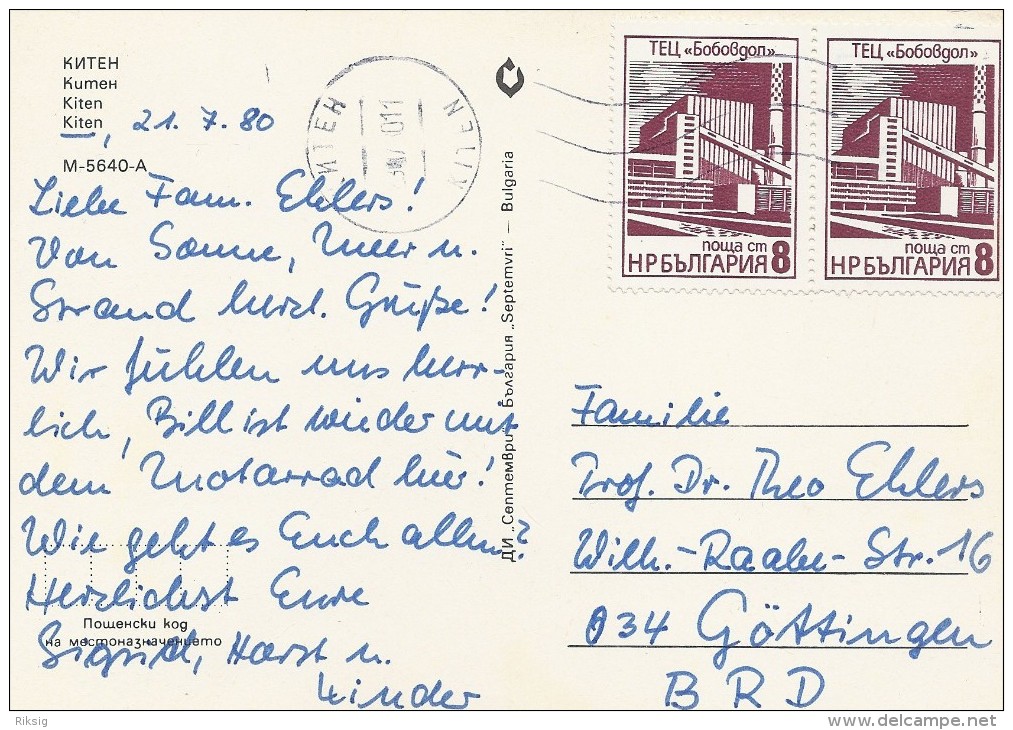 КИТЕН
Китен
Kiten
Kiten
, 21. 7. 80
М-5640-А
Liebe Fam. Ehlers!
Von Sonne, Meer u.
Strand herzl. Grüße!
Wir fühlen uns herr-
lich, Bill ist wieder mit
dem Motorrad hier!
Wie geht es Euch allen?
Herzlichst Eure
Sigrid, Horst u.
Kinder
Пощенски код
на местоназначението
ДИ „Септември" – България „Septemvri" – Bulgaria
КИТЕН
KITEN
ТЕЦ «Бобовдол»
поща ст
НРБЪЛГАРИЯ 8
ТЕЦ «Бобовдол»
поща ст
НРБЪЛГАРИЯ 8
Familie
Prof. Dr. Theo Ehlers
Wilh.-Raabe-Str. 16
034 Göttingen
BRD
Riksig
www.delcampe.net